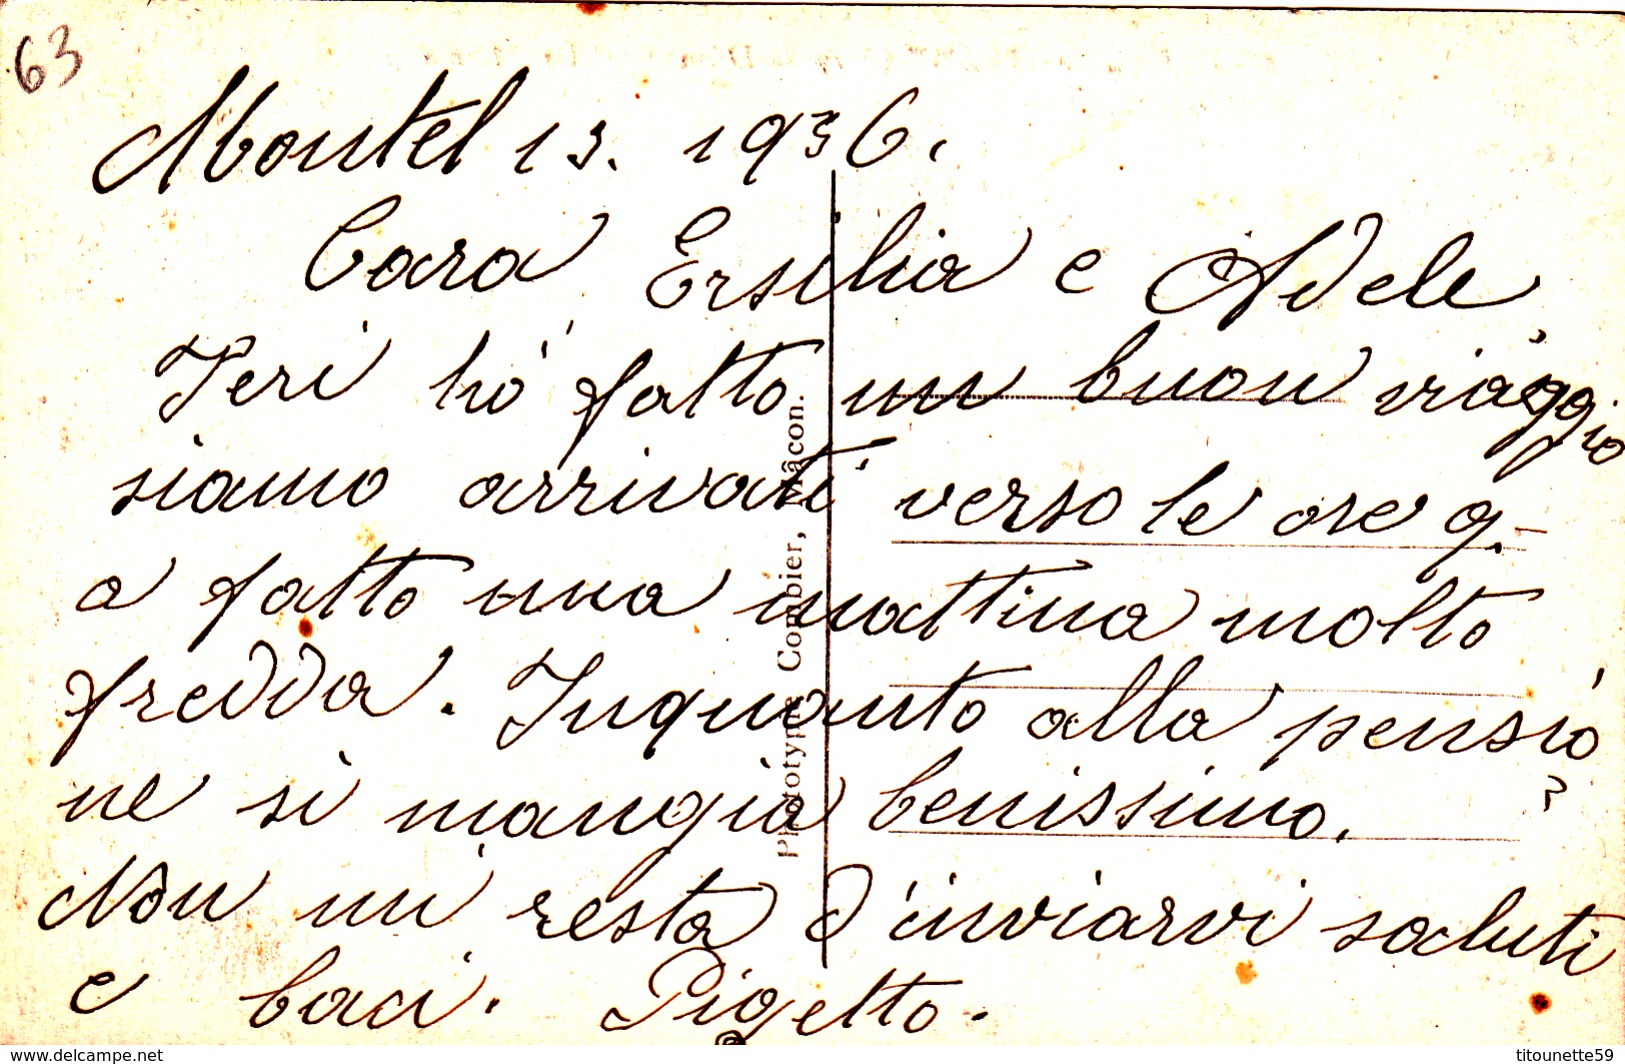 63
Montel 13. 1936.
Cara Ersilia e Adele
Ieri hó fatto un buon viaggio
siamo arrivati verso le ore 9.
a fatto una mattina molto
fredda. Inquanto alla pensio
ne si mangia benissimo.
Non mi resta d'inviarvi saluti
e baci. Pigetto.
Phototypie Combier, Mâcon.
www.delcampe.net
titounette59